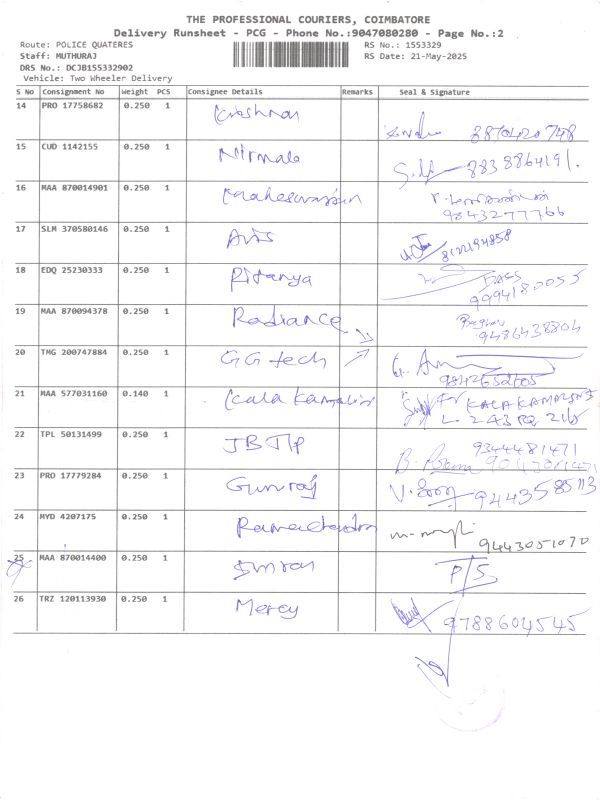 THE PROFESSIONAL COURIERS, COIMBATORE
Delivery Runsheet - PCG - Phone No.:9047080280 - Page No.:2
Route: POLICE QUATERES
RS No.: 1553329
Staff: MUTHURAJ
RS Date: 21-May-2025
DRS No.: DCJB155332902
Vehicle: Two Wheeler Delivery
S No Consignment No Weight PCS Consignee Details Remarks Seal & Signature
14 PRO 17758682 0.250 1 Krishnan
15 CUD 1142155 0.250 1 Nirmala 8838864191.
16 MAA 870014901 0.250 1 Maheswaran
9843277766
17 SLM 370580146 0.250 1 Avis 8122194858
18 EDQ 25230333 0.250 1 Ritanya
9994180055
19 MAA 870094378 0.250 1 Radiance
9486438804
20 TMG 200747884 0.250 1 GG tech
21 MAA 577031160 0.140 1 Kala Kamalini KALA KAMALINI
22 TPL 50131499 0.250 1 JBTTp 9344481471
23 PRO 17779284 0.250 1 Gunraj 9443585113
24 MYD 4207175 0.250 1 Ramachandra
9443051070
25 MAA 870014400 0.250 1 Simran P/S
26 TRZ 120113930 0.250 1 Mercy 9788604545